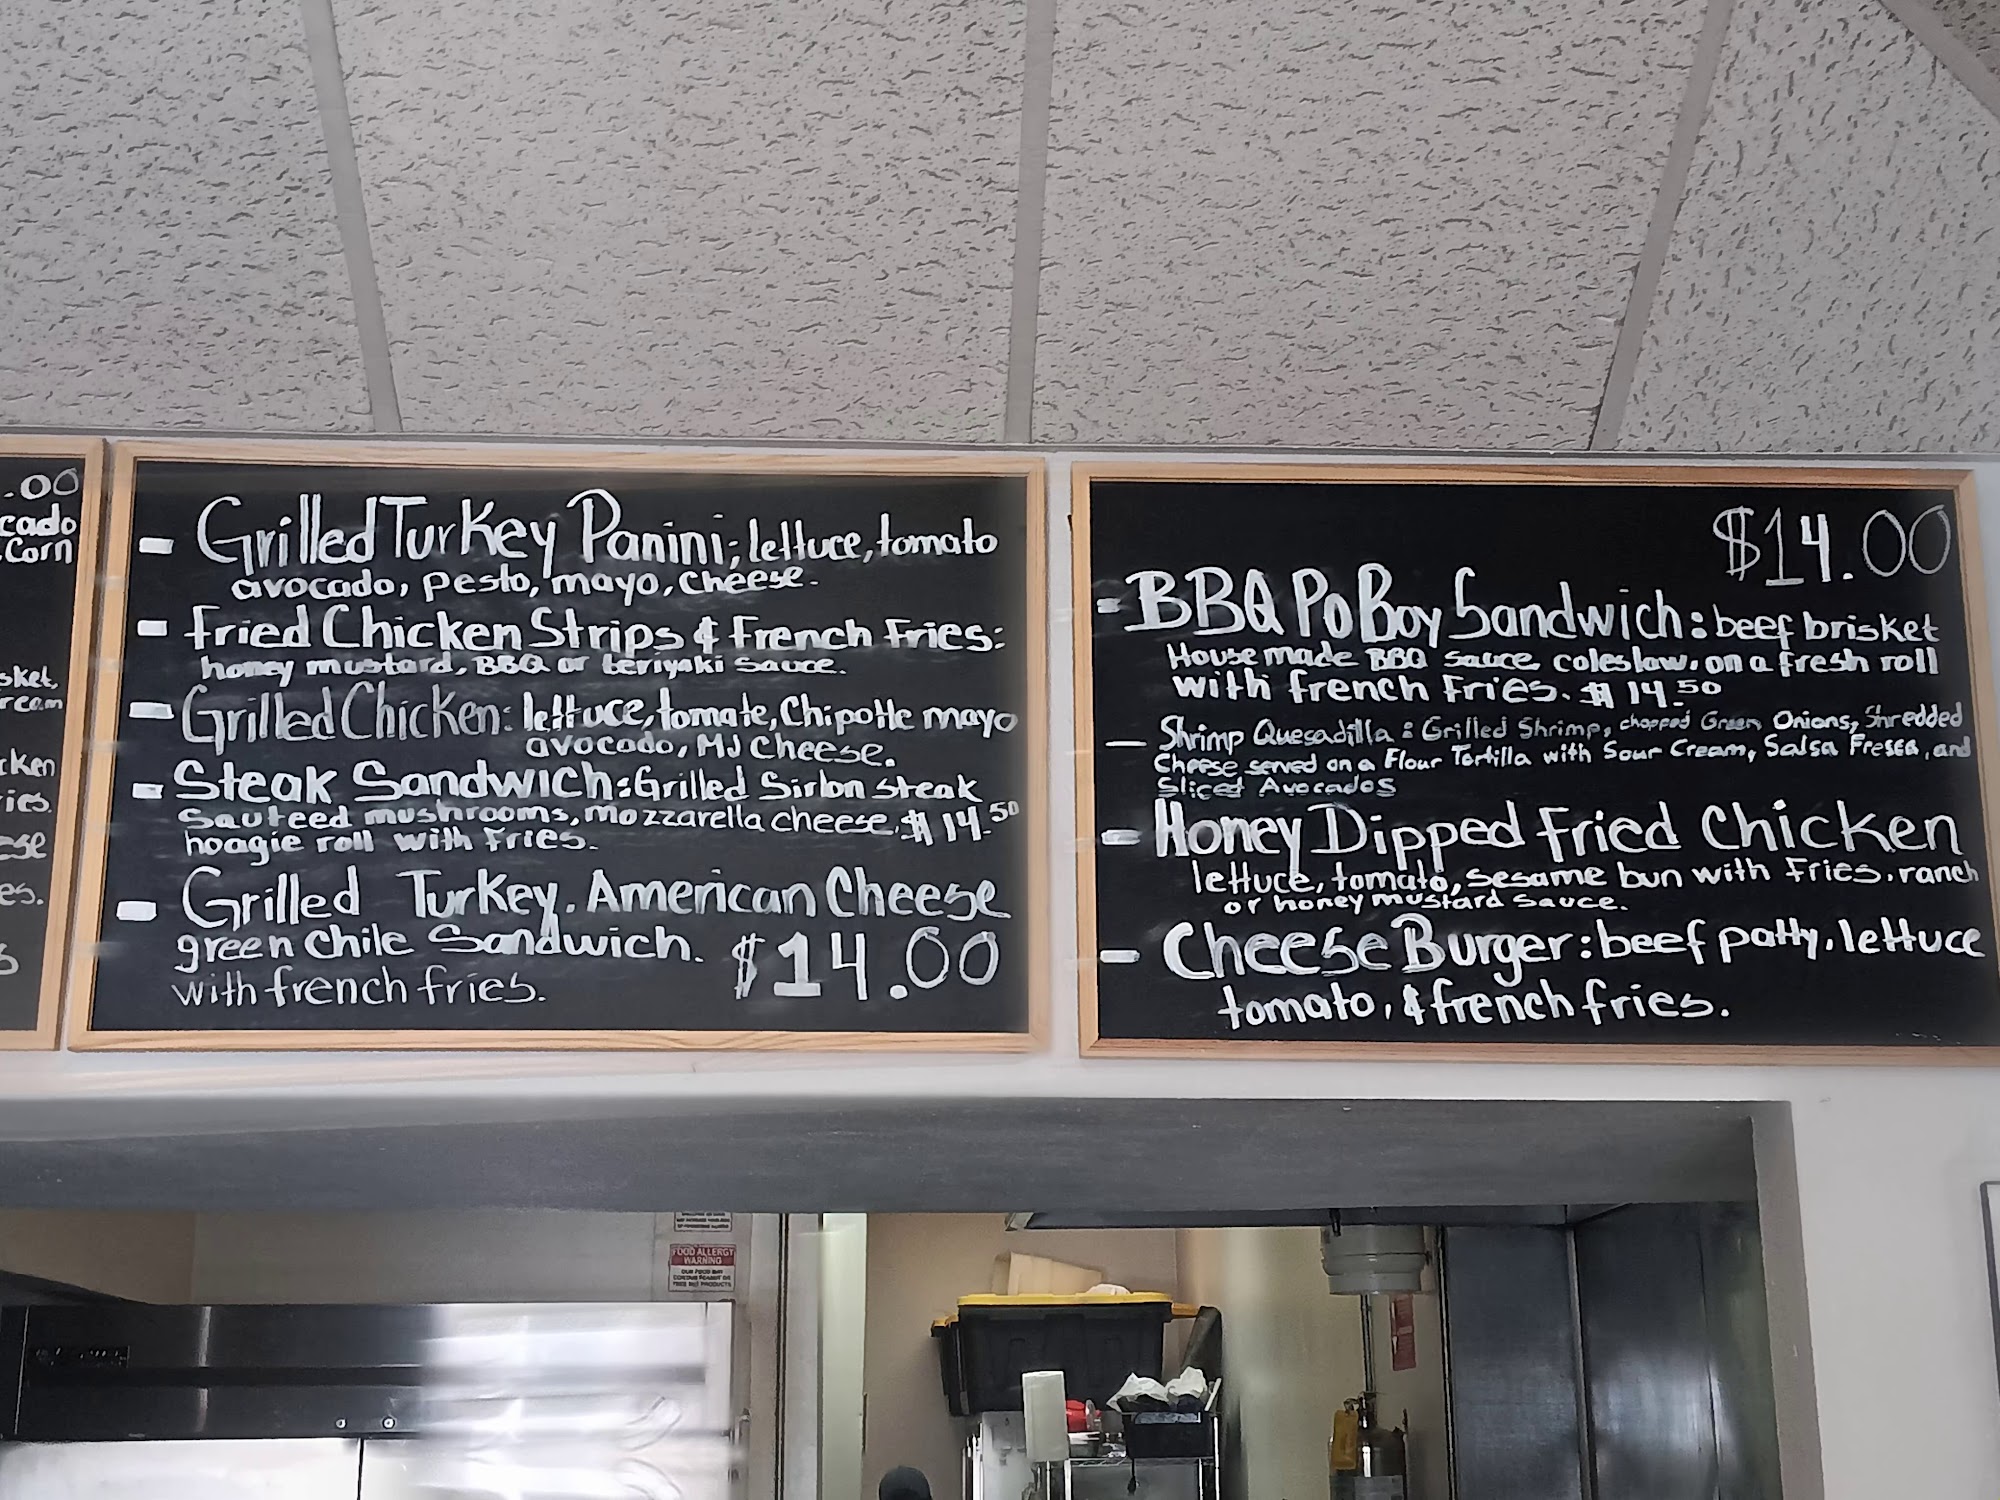 .00
cado
Corn
sket,
ream
cken
ries.
ese
es.
- Grilled Turkey Panini; lettuce, tomato
avocado, pesto, mayo, cheese.
- Fried Chicken Strips & French Fries:
honey mustard, BBQ or teriyaki sauce.
- Grilled Chicken: lettuce, tomate, Chipotle mayo
avocado, MJ Cheese.
- Steak Sandwich: Grilled Sirlon steak
Sauteed mushrooms, mozzarella cheese, $14.50
hoagie roll with fries.
- Grilled Turkey, American Cheese
green Chile Sandwich.
with french fries.
$14.00
$14.00
- BBQ Po Boy Sandwich: beef brisket
House made BBQ sauce, coleslaw, on a fresh roll
with french fries. $14.50
- Shrimp Quesadilla: Grilled Shrimp, chopped Green Onions, Shredded
Cheese served on a Flour Tortilla with Sour Cream, Salsa Fresca, and
Sliced Avocados
- Honey Dipped Fried Chicken
lettuce, tomato, sesame bun with fries. ranch
or honey mustard sauce.
- Cheese Burger: beef patty, lettuce
tomato, & french fries.
FOOD ALLERGY
WARNING